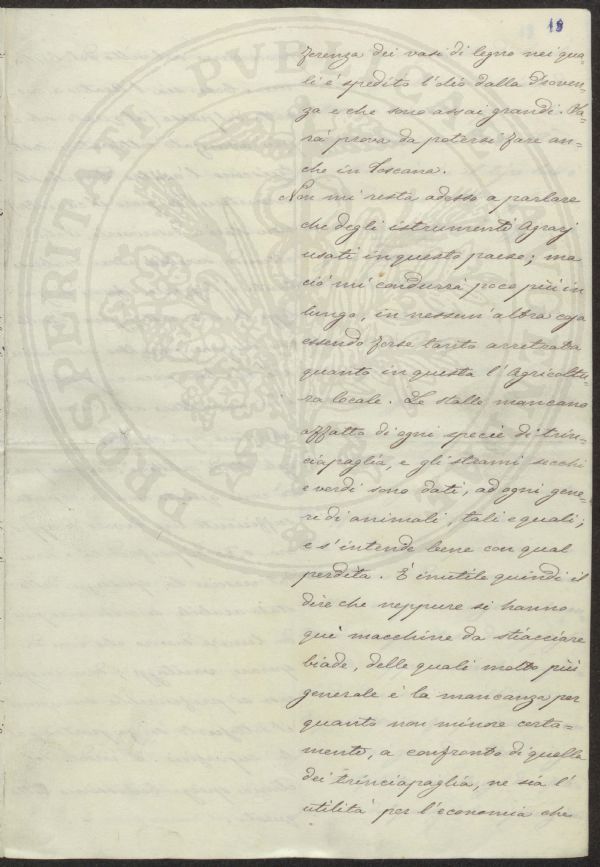 19
ferenza dei vasi di legno nei qua=
li è spedito l'olio dalla Proven=
za e che sono assai grandi. Sa=
rà prova da potersi fare an=
che in Toscana.
Non mi resta adesso a parlare
che degli istrumenti Agrarj
usati in questo paese; ma
ciò mi condurrà poco più in
lungo, in nessun'altra cosa
essendo forse tanto arretrata
quanto in questa l'Agricoltu=
ra locale. Le stalle, mancano
affatto di ogni specie di trin=
ciapaglia, e gli strami secchi
e verdi sono dati, ad ogni gene=
re di animali, tali e quali;
e s'intende bene con qual
perdita. È inutile quindi il
dire che neppure si hanno
quì macchine da stiacciare
biade, delle quali molto più
generale è la mancanza per
quanto non minore certa=
mente, a confronto di quella
dei trinciapaglia, ne sia l'
utilità per l'economia che
PROSPERITATI PUBLICAE